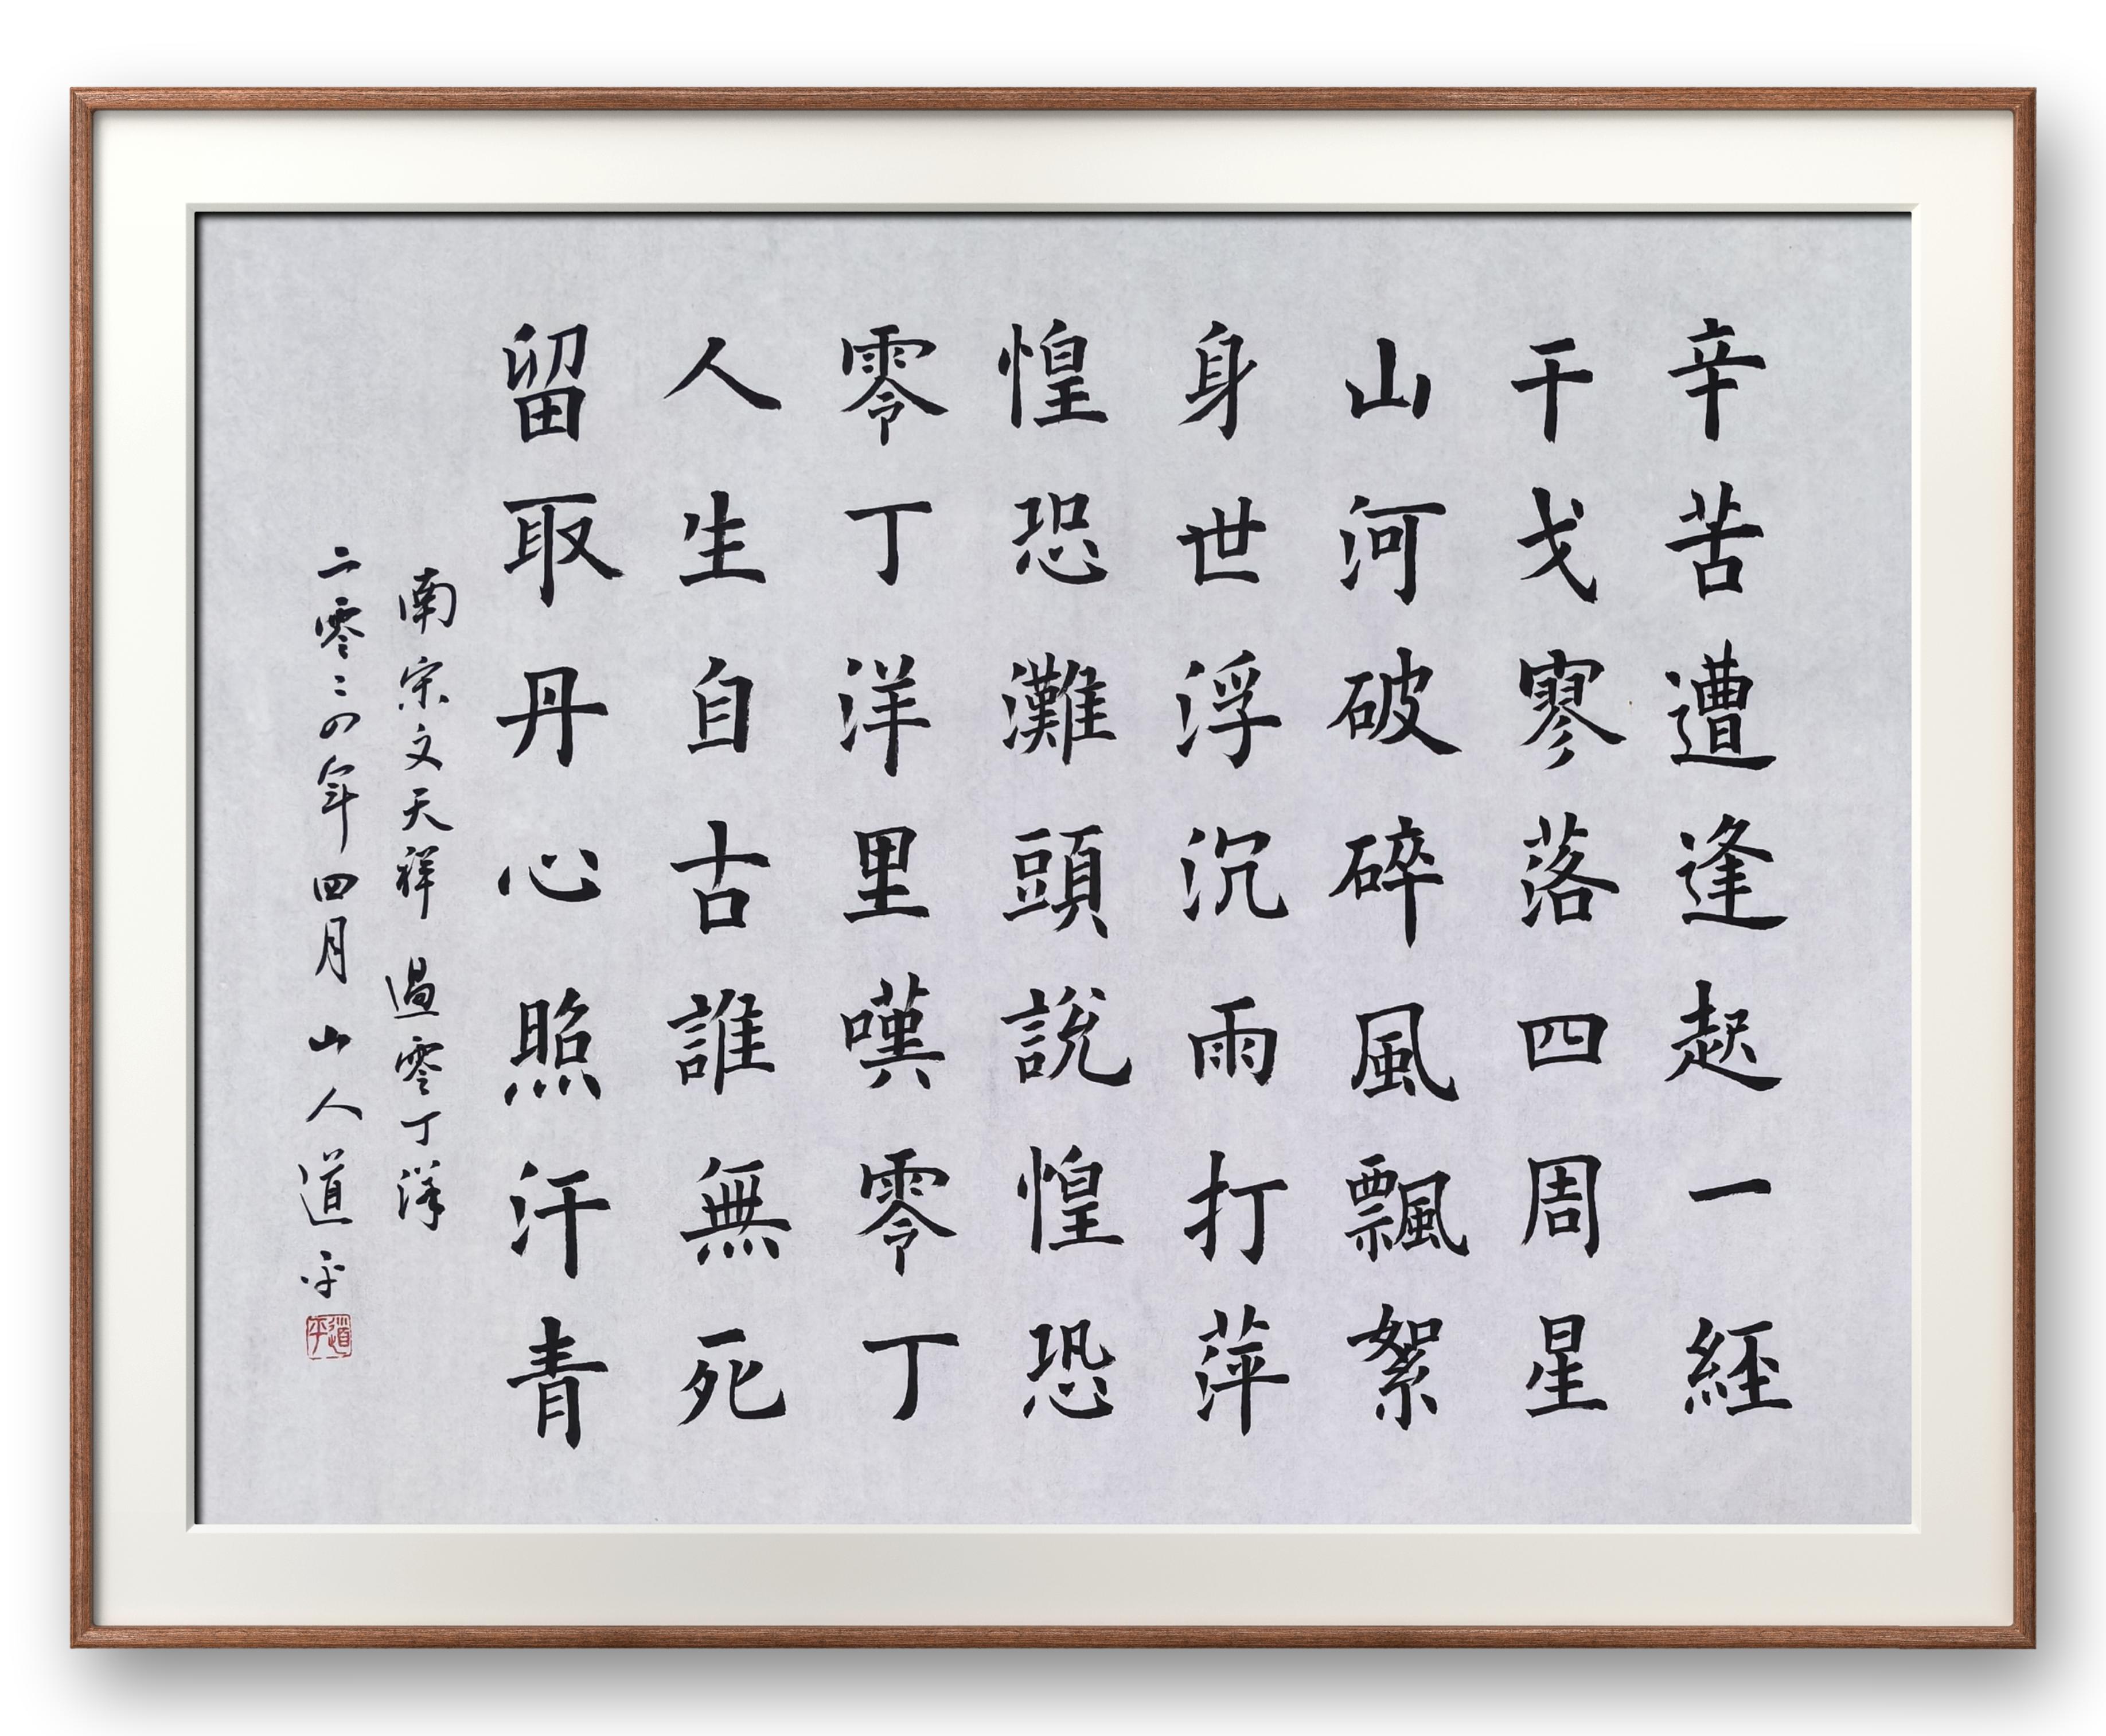 辛苦遭逢起一經
干戈寥落四周星
山河破碎風飄絮
身世浮沉雨打萍
惶恐灘頭說惶恐
零丁洋里嘆零丁
人生自古誰無死
留取丹心照汗青
南宗文天祥 過零丁洋
二零二四年四月 山人道平
道平